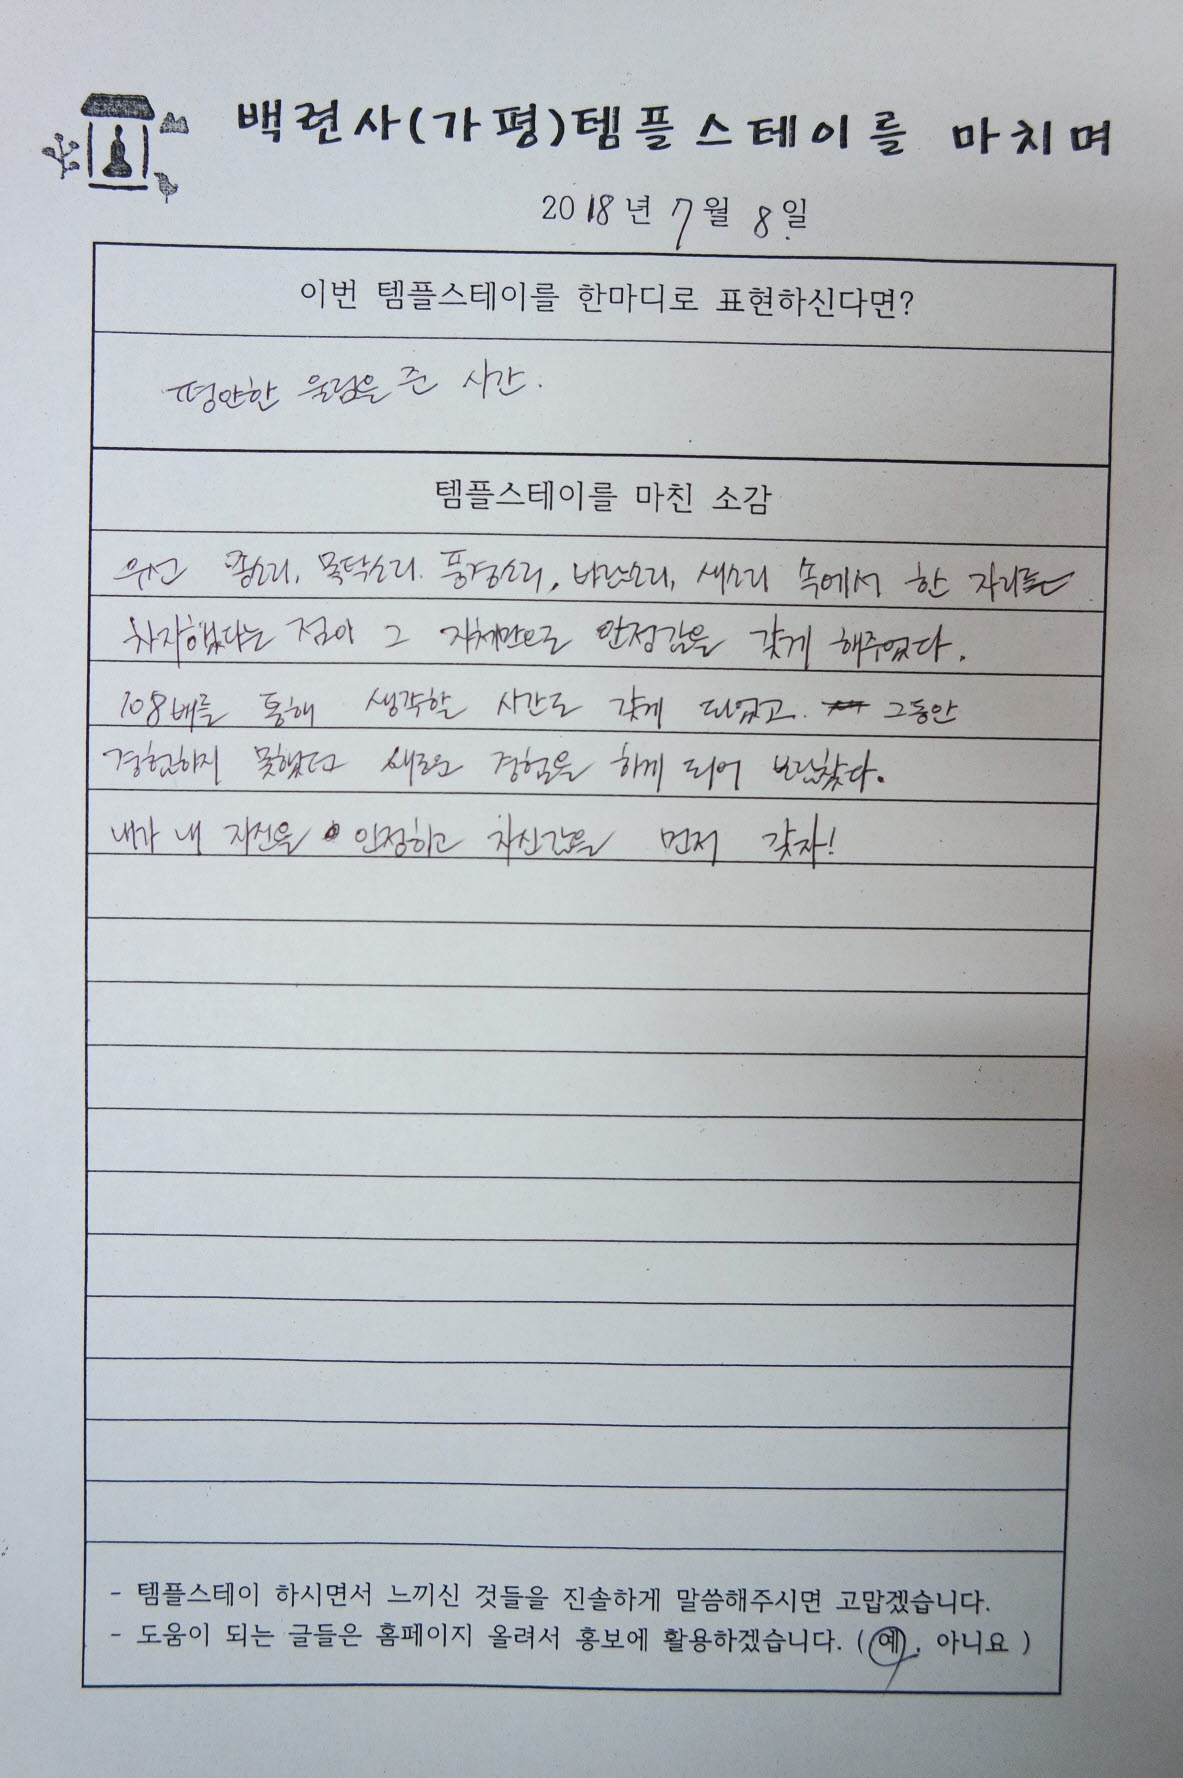 백련사(가평)템플스테이를 마치며
2018년 7월 8일
이번 템플스테이를 한마디로 표현하신다면?
평안한 울림을 준 시간.
템플스테이를 마친 소감
우선 종소리, 목탁소리. 풍경소리, 바람소리, 새소리 속에서 한 자리를
차지했다는 점이 그 자체만으로 안정감을 갖게 해주었다.
108배를 통해 생각할 시간도 갖게 되었고. 그동안
경험하지 못했던 새로운 경험을 하게 되어 보람찼다.
내가 내 자신을 인정하고 자신감을 먼저 갖자!
- 템플스테이 하시면서 느끼신 것들을 진솔하게 말씀해주시면 고맙겠습니다.
- 도움이 되는 글들은 홈페이지 올려서 홍보에 활용하겠습니다. ( 예, 아니요 )